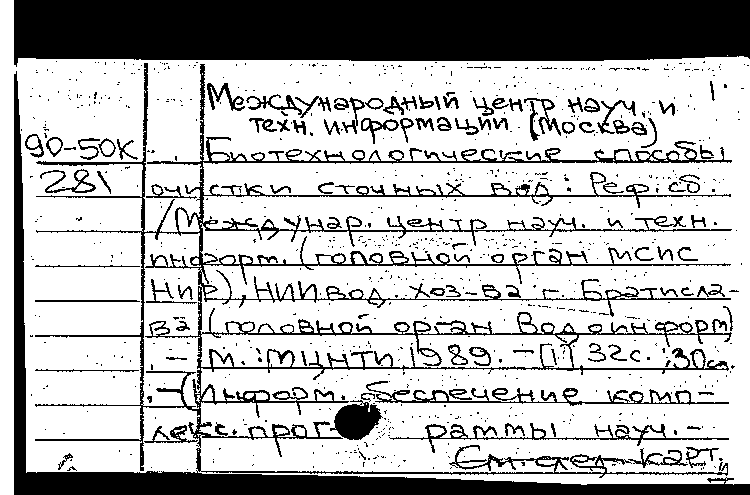 1.
Международный центр науч. и
техн. информации (Москва)
90-50К Биотехнологические способы
281 очистки сточных вод: Реф. сб.
/Междунар. центр науч. и техн.
информ. (головной орган МСИС
НИР), НИИ вод. хоз-ва г. Братисла-
ва (головной орган Водоинформ)
. - М. : МЦНТИ, 1989. - [1], 32с. ; 30см.
. - (Информ. обеспечение комп-
лекс. прог- раммы науч. -
См. след. карт.